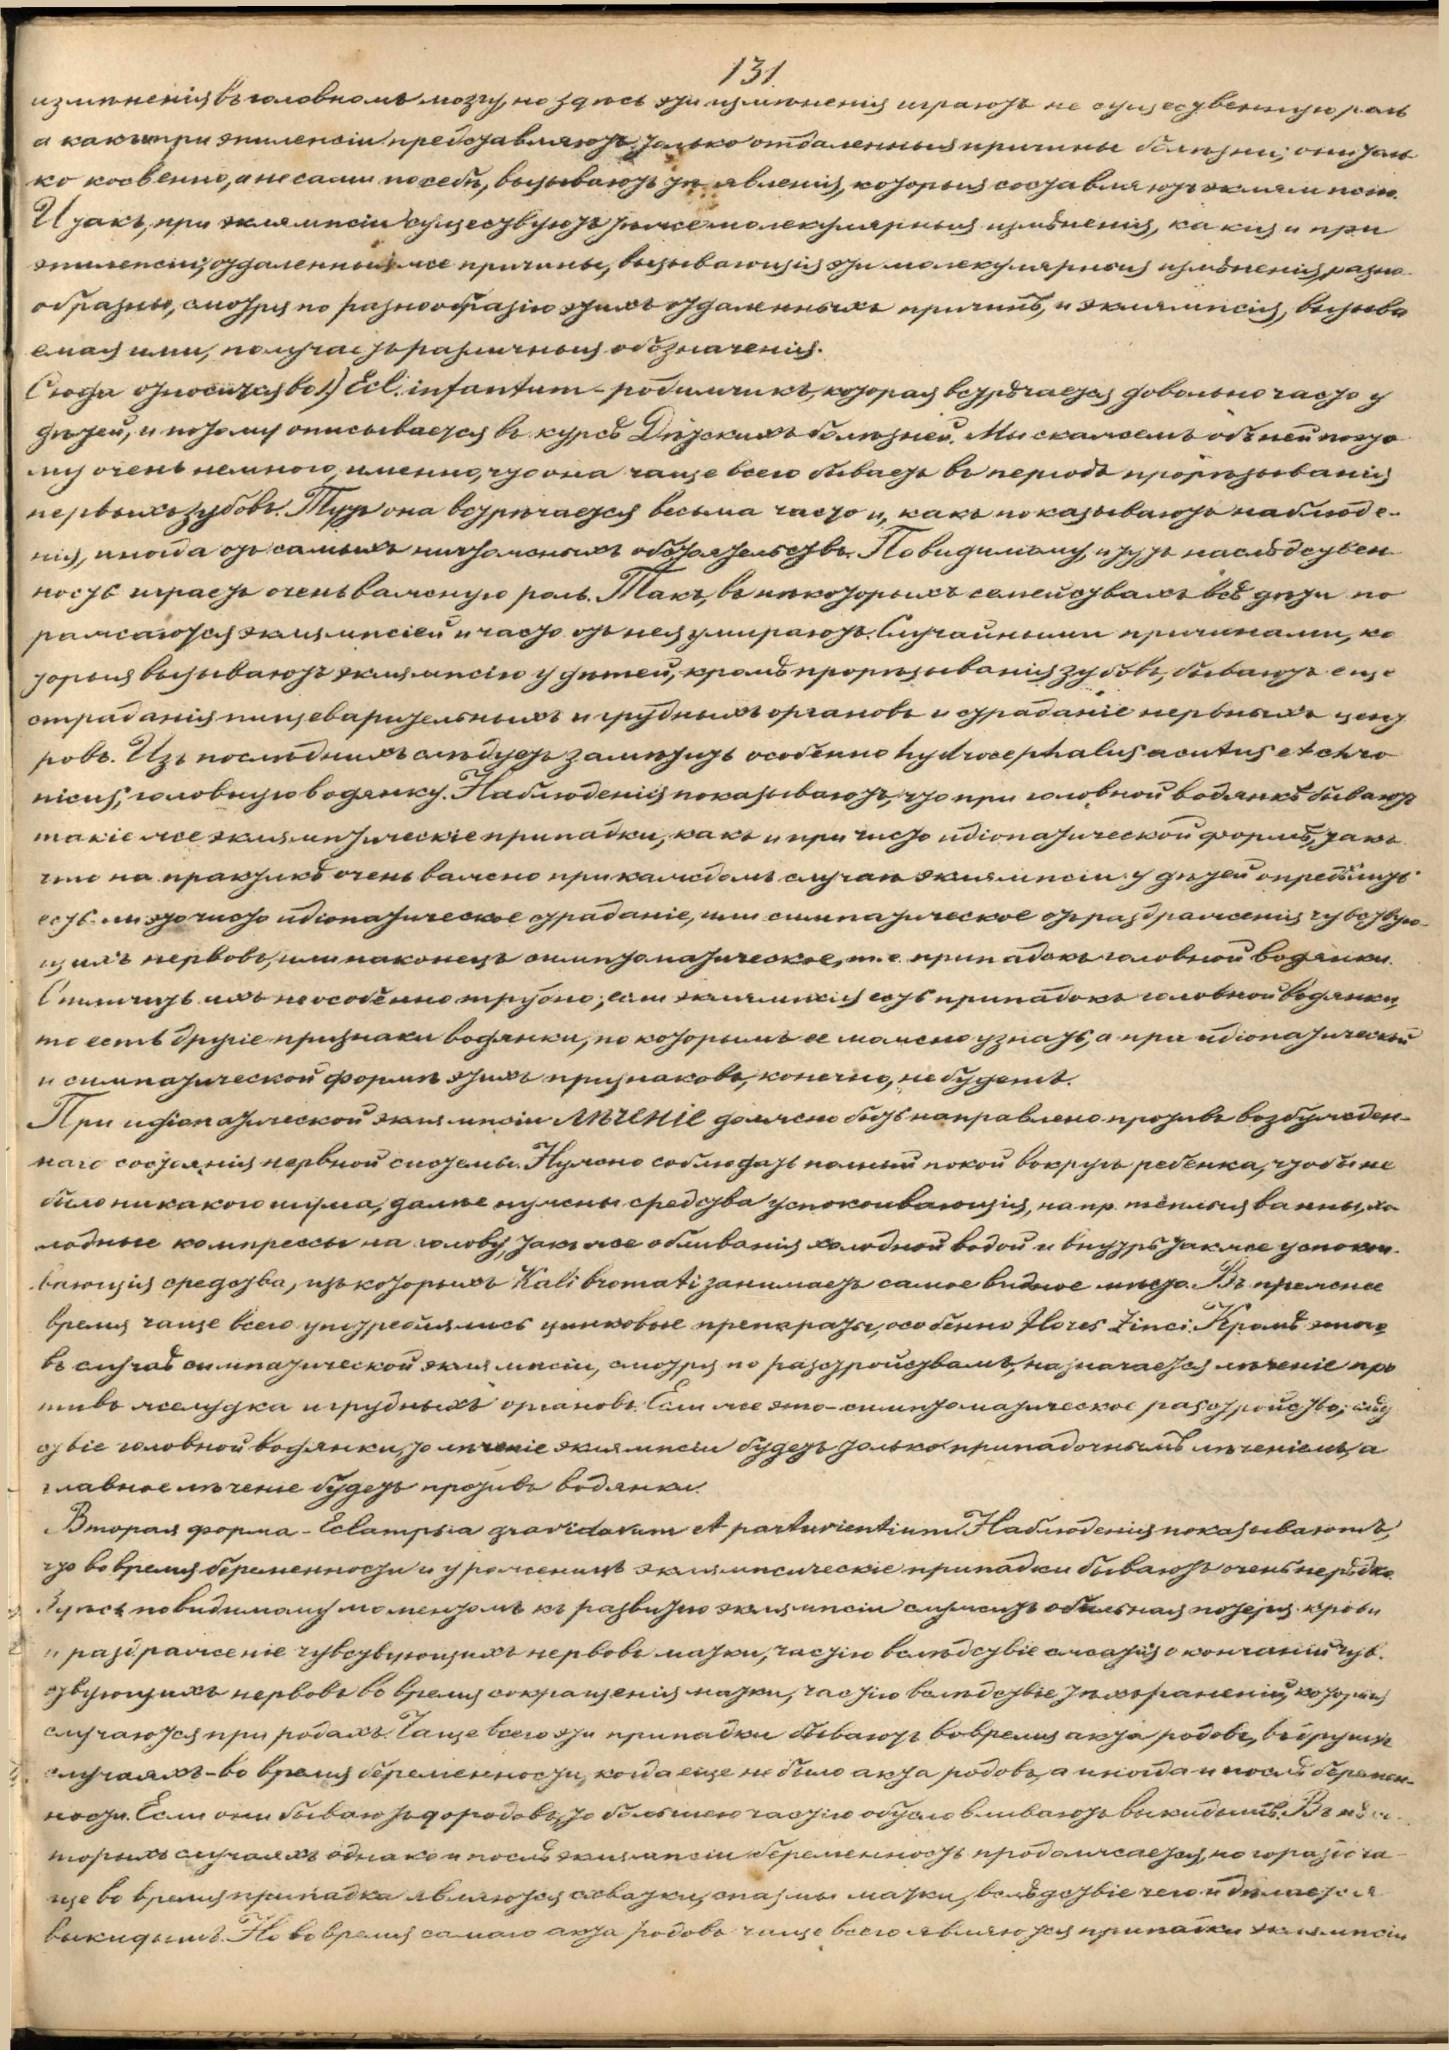 131.
измѣненія въ головномъ мозгу, но здѣсь эти измѣненія играютъ не существенную роль
а какъ и при эпилепсіи представляютъ только отдаленныя причины болѣзни; они толь
ко косвенно, а не сами по себѣ, вызываютъ тѣ явленія, которыя составляютъ эклямпсію.
Итакъ, при эклямпсіи существуютъ такіе же молекулярныя измѣненія, какія и при
эпилепсіи, отдаленныя же причины, вызывающія эти молекулярныя измѣненія, разно
образны, смотря по разнообразію этихъ отдаленныхъ причинъ, и эклямпсія, вызыва
емая ими, получаетъ различныя обозначенія.
Сюда относится во 1) Ecl. infantum - родимчикъ, которая встрѣчается довольно часто у
дѣтей, и потому описывается въ курсѣ Дѣтскихъ болѣзней. Мы скажемъ объ ней пото
му очень немного, именно, что она чаще всего бываетъ въ періодѣ прорѣзыванія
первыхъ зубовъ. Тутъ она встрѣчается весьма часто и, какъ показываютъ наблюде-
нія, иногда отъ самыхъ ничтожныхъ обстоятельствъ. Повидимому, и тутъ наслѣдствен
ность играетъ очень важную роль. Такъ, въ нѣкоторыхъ семействахъ всѣ дѣти по
ражаются эклямпсіей и часто отъ нея умираютъ. Случайными причинами, ко
торыя вызываютъ эклямпсію у дѣтей, кромѣ прорѣзыванія зубовъ, бываютъ еще
страданія пищеварительныхъ и грудныхъ органовъ и страданіе нервныхъ цент
ровъ. Изъ послѣднихъ слѣдуетъ замѣтить особенно hydrocephalus acutus et chro
nicus, головную водянку. Наблюденія показываютъ, что при головной водянкѣ бываютъ
такіе же эклямптическіе припадки, какъ и при чисто идіопатической формѣ, такъ
что на практикѣ очень важно при каждомъ случаѣ эклямпсіи у дѣтей опредѣлить
есть ли это чисто идіопатическое страданіе, или симпатическое отъ раздраженія чувствую-
щихъ нервовъ, или наконецъ симптоматическое, т.е. припадокъ головной водянки.
Отличить ихъ не особенно трудно; если эклямпсія есть припадокъ головной водянки,
то есть другіе признаки водянки, по которымъ ее можно узнать, а при идіопатической
и симпатической формѣ этихъ признаковъ, конечно, не будетъ.
При идіопатической эклямпсіи лѣченіе должно быть направлено противъ возбужден-
наго состоянія нервной системы. Нужно соблюдать полный покой вокругъ ребенка, чтобы не
было никакого шума, далѣе нужны средства успокоивающія, напр. тёплыя ванны, хо
лодные компрессы на голову, также обливанія холодной водой и внутрь также успокои-
вающія средства, изъ которыхъ Kali bromati занимаетъ самое видное мѣсто. Въ прежнее
время чаще всего употреблялись цинковые препараты, особенно Flores Zinci. Кромѣ этого
въ случаѣ симпатической эклямпсіи, смотря по разстройствамъ, назначается лѣченіе про
тивъ желудка и грудныхъ органовъ. Если же это - симптоматическое разстройство, слѣд
ствіе головной водянки, то лѣченіе эклямпсіи будетъ только припадочнымъ лѣченіемъ, а
главное лѣченіе будетъ противъ водянки.
Вторая форма - Eclampsia gravidarum et parturientium. Наблюденія показываютъ,
что во время беременности и у роженицъ эклямпсическіе припадки бываютъ очень нерѣдко.
Здѣсь повидимому моментомъ къ развитію эклямпсіи служитъ обильная потеря крови
и раздраженіе чувствующихъ нервовъ матки, частію вслѣдствіе сжатія окончаній чув-
ствующихъ нервовъ во время сокращенія матки, частію вслѣдствіе тѣхъ раненій, которыя
случаются при родахъ. Чаще всего эти припадки бываютъ во время акта родовъ, въ другихъ
случаяхъ - во время беременности, когда еще не было акта родовъ, а иногда и послѣ беремен-
ности. Если они бываютъ до родовъ, то большею частію обусловливаютъ выкидышъ. Въ нѣко
торыхъ случаяхъ однако и послѣ эклямпсіи беременность продолжается, но гораздо ча-
ще во время припадка являются схватки, спазмы матки, вслѣдствіе чего и дѣлается
выкидышъ. Но во время самого акта родовъ чаще всего являются припадки эклямпсіи